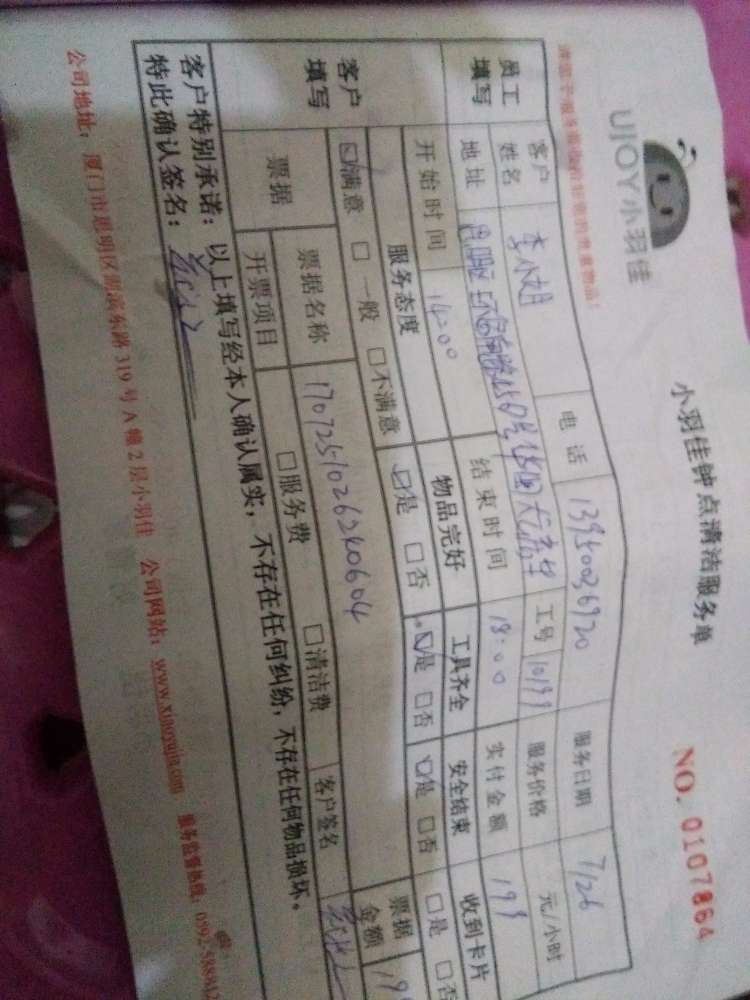 UJOY小羽佳
小羽佳钟点清洁服务单
NO. 0107864
员工填写
客户姓名 李小姐 电话 13950036920 服务日期 7/26
地址 工号 10199 服务价格 元/小时
开始时间 14:00 结束时间 18:00 实付金额 199
客户填写
服务态度 物品完好 工具齐全 安全结束 收到卡片
☑满意 □一般 □不满意 ☑是 □否 ☑是 □否 ☑是 □否 □是 □否
票据 票据名称 1707251026240604 票据金额 199
开票项目 □服务费 □清洁费 客户签名
客户特别承诺：以上填写经本人确认属实，不存在任何纠纷，不存在任何物品损坏。
特此确认签名：
公司地址：厦门市思明区湖滨东路319号A幢2层小羽佳 公司网站：www.xiaoyujia.com 服务监督热线：0592-5889